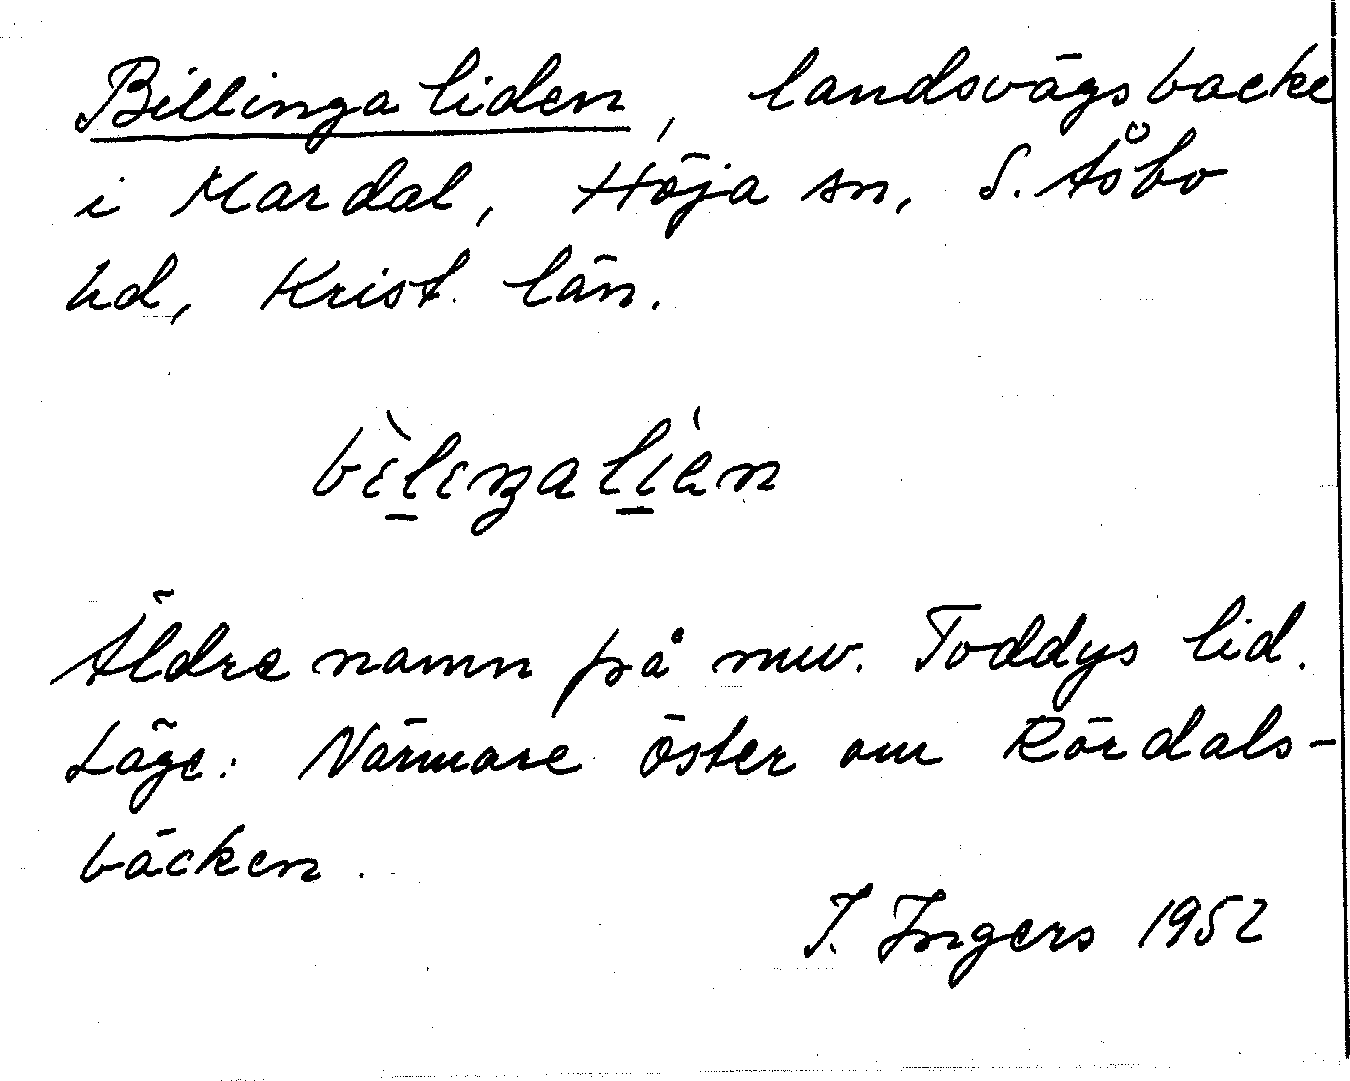 Billingaliden, landsvägsbacke
i Mardal, Höja sn, S. Åsbo
hd, Krist. län.
Äldre namn på nuv. Toddys lid.
Läge: Närmare öster om Rördals-
bäcken.
I. Ingers 1952